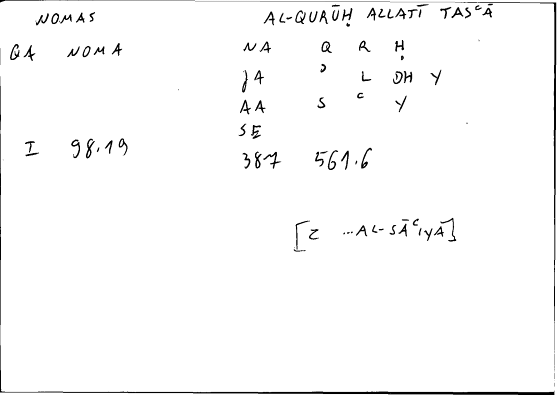 NOMAS AL-QURŪḤ ALLATĪ TASʿĀ
GA NOMA NA Q R Ḥ
JA ʾ L DH Y
AA S ʿ Y
SE
I 98.19 387 561.6
[Z ...AL-SĀʿIYA]